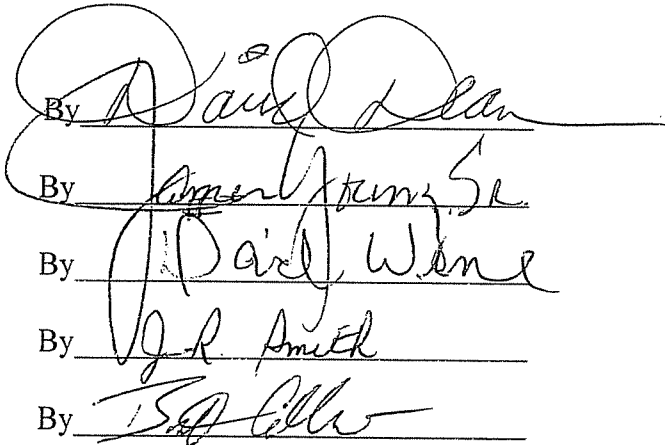 By David Dean
By James Young Sr.
By David Wene
By J-R. Smith
By